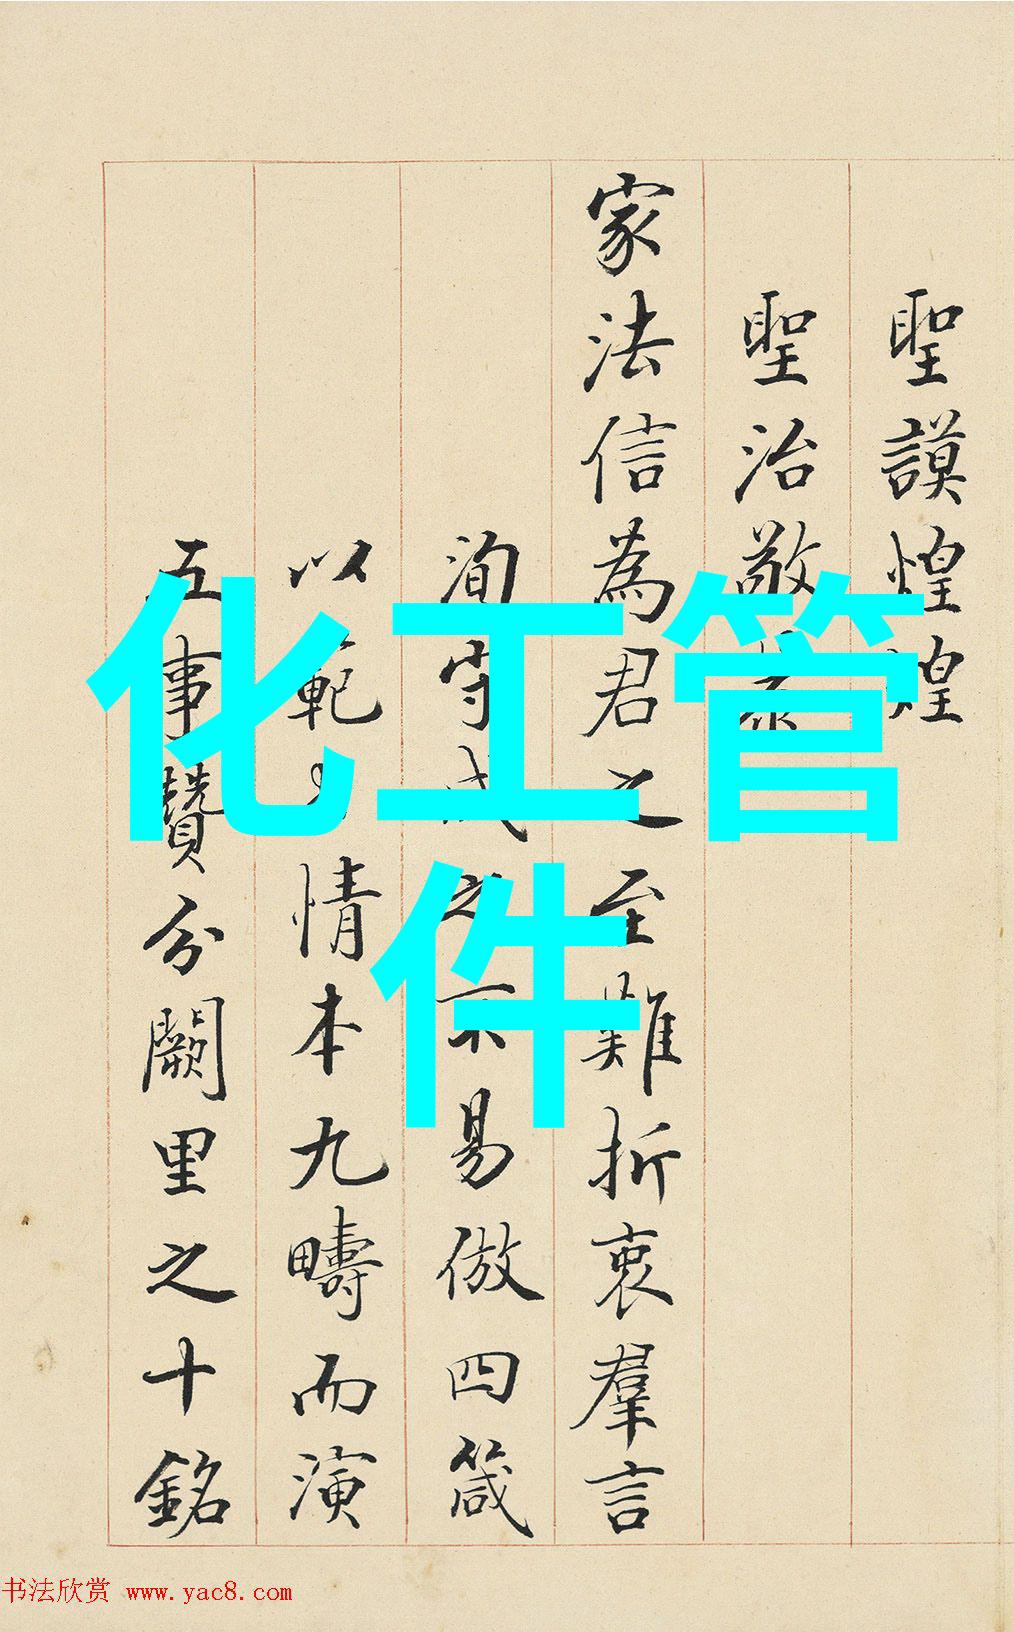 聖謨煌煌
聖治敬
家法信為君之至難折衷羣言
洵守成之不易倣四箴
以範 情本九疇而演
五事贊分闕里之十銘
化工管
件
书法欣赏 www.yac8.com